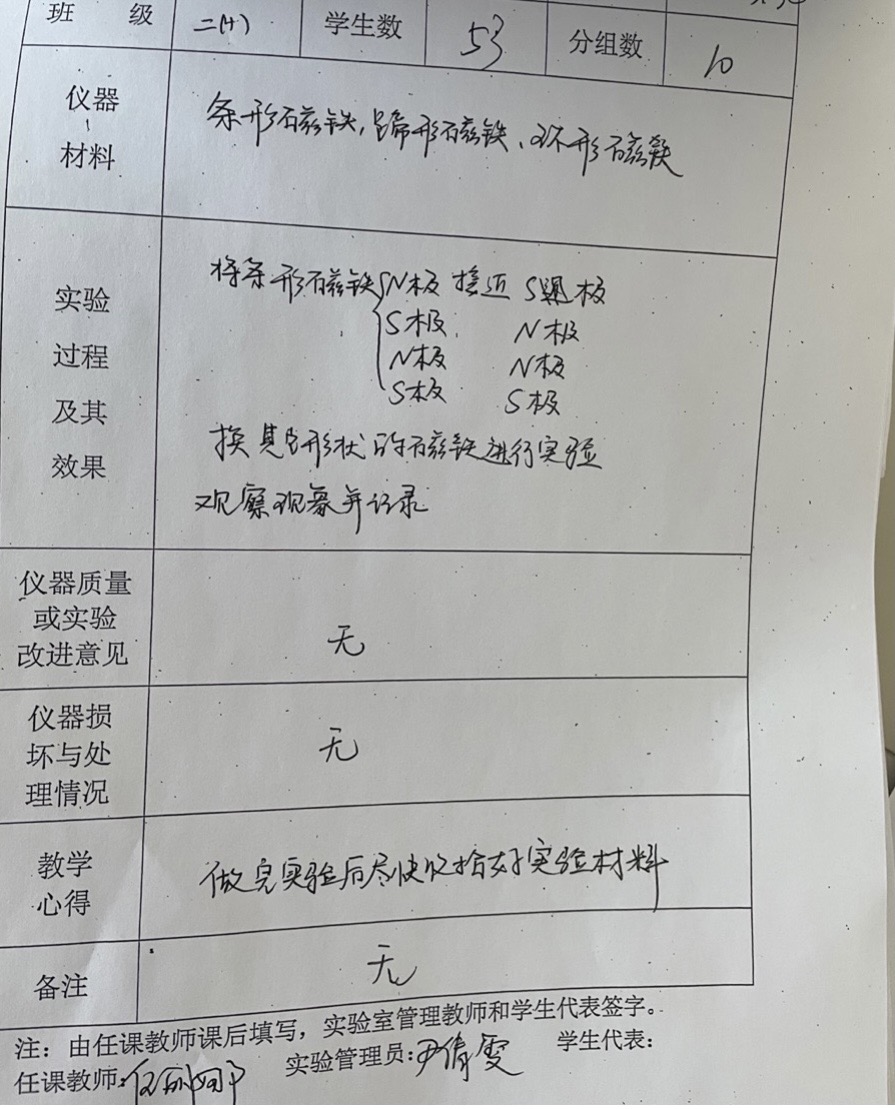 班 级 二(十) 学生数 53 分组数 10
仪器、材料 条形磁铁,蹄形磁铁、环形磁铁
实验过程及其效果
将条形磁铁 N极 接近 S极
S极 N极
N极 N极
S极 S极
换其它形状的磁铁进行实验
观察现象并记录
仪器质量
或实验
改进意见
无
仪器损
坏与处
理情况
无
教学
心得
做完实验后尽快收拾好实验材料
备注 无
注:由任课教师课后填写,实验室管理教师和学生代表签字。
任课教师: 实验管理员:尹倩雯 学生代表: